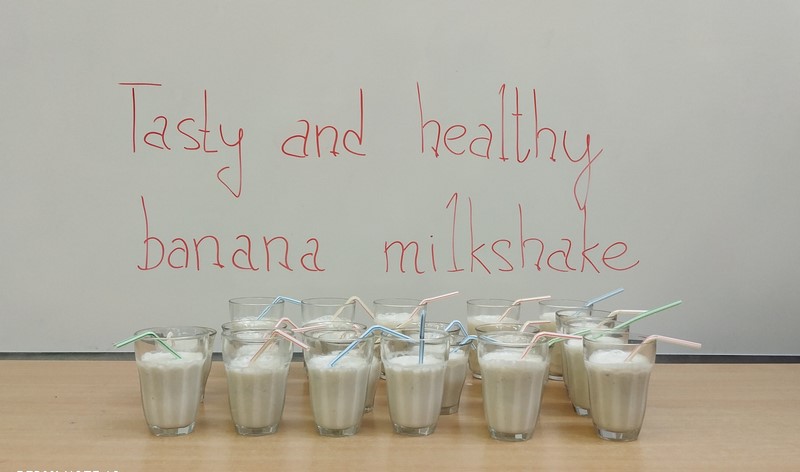 Tasty and healthy
banana milkshake